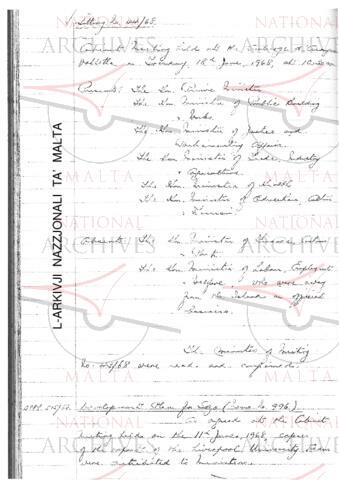 Sitting No. 44/68.
Cabinet Meeting held at the Auberge d'Aragon
Valletta on Tuesday, 18th June, 1968, at 10.30 am
Present: The Hon. Prime Minister
The Hon. Minister of Public Building
& Works.
The Hon. Minister of Justice and
Parliamentary Affairs.
The Hon. Minister of Trade, Industry
& Agriculture.
The Hon. Minister of Health
The Hon. Minister of Education, Culture
& Tourism
Absent: The Hon. Minister of
The Hon. Minister of Labour, Employment
& Welfare, who were away
from the Island on official
business.
The Minutes of Meeting
No. 43/68 were read and confirmed.
Development Plan for Gozo (Memo No. 996.)
As agreed at the Cabinet
meeting held on the 11th June, 1968, copies
of the report of the Liverpool University Team
were distributed to Ministers.
L-ARKIVJI NAZZJONALI TA' MALTA
NATIONAL
ARCHIVES
MALTA
NATIONAL
ARCHIVES
MALTA
NATIONAL
ARCHIVES